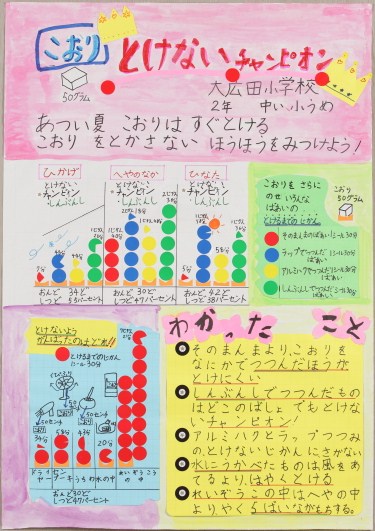 こおり とけないチャンピオン
50グラム
大広田小学校
2年
あつい夏 こおりは すぐとける
こおり をとかさない ほうほうをみつけよう!
ひかげ
とけない
チャンピオン
しんぶんし
おんど 34ど
しつど 53パーセント
へやのなか
とけない
チャンピオン
しんぶんし
おんど 30ど
しつど47パーセント
ひなた
とけない
チャンピオン
しんぶんし
おんど 42ど
しつど38パーセント
こおりを さらに
のせ いろんな
ばあいの
とけるまでのじかん
こおり
50グラム
そのままのばあい
ラップでつつんだ
アルミハクでつつんだ
ばあい
しんぶんしでつつんだ
ばあい
とけないよう
とけるまでのじかん
34分
58分
43分
20分
おんど30ど
しつど47パーセント
わかった こと
そのまんまより、こおりを
なにかでつつんだほうが
とけにくい
しんぶんしでつつんだもの
はどこのばしょでもとけな
いチャンピオン!
アルミハクとラップつつみ
の、とけないじかんにさがない
水にうかべたものは風をあ
てるより、はやくとける
れいぞうこの中はへやの中
よりやく5ばいながもちする。